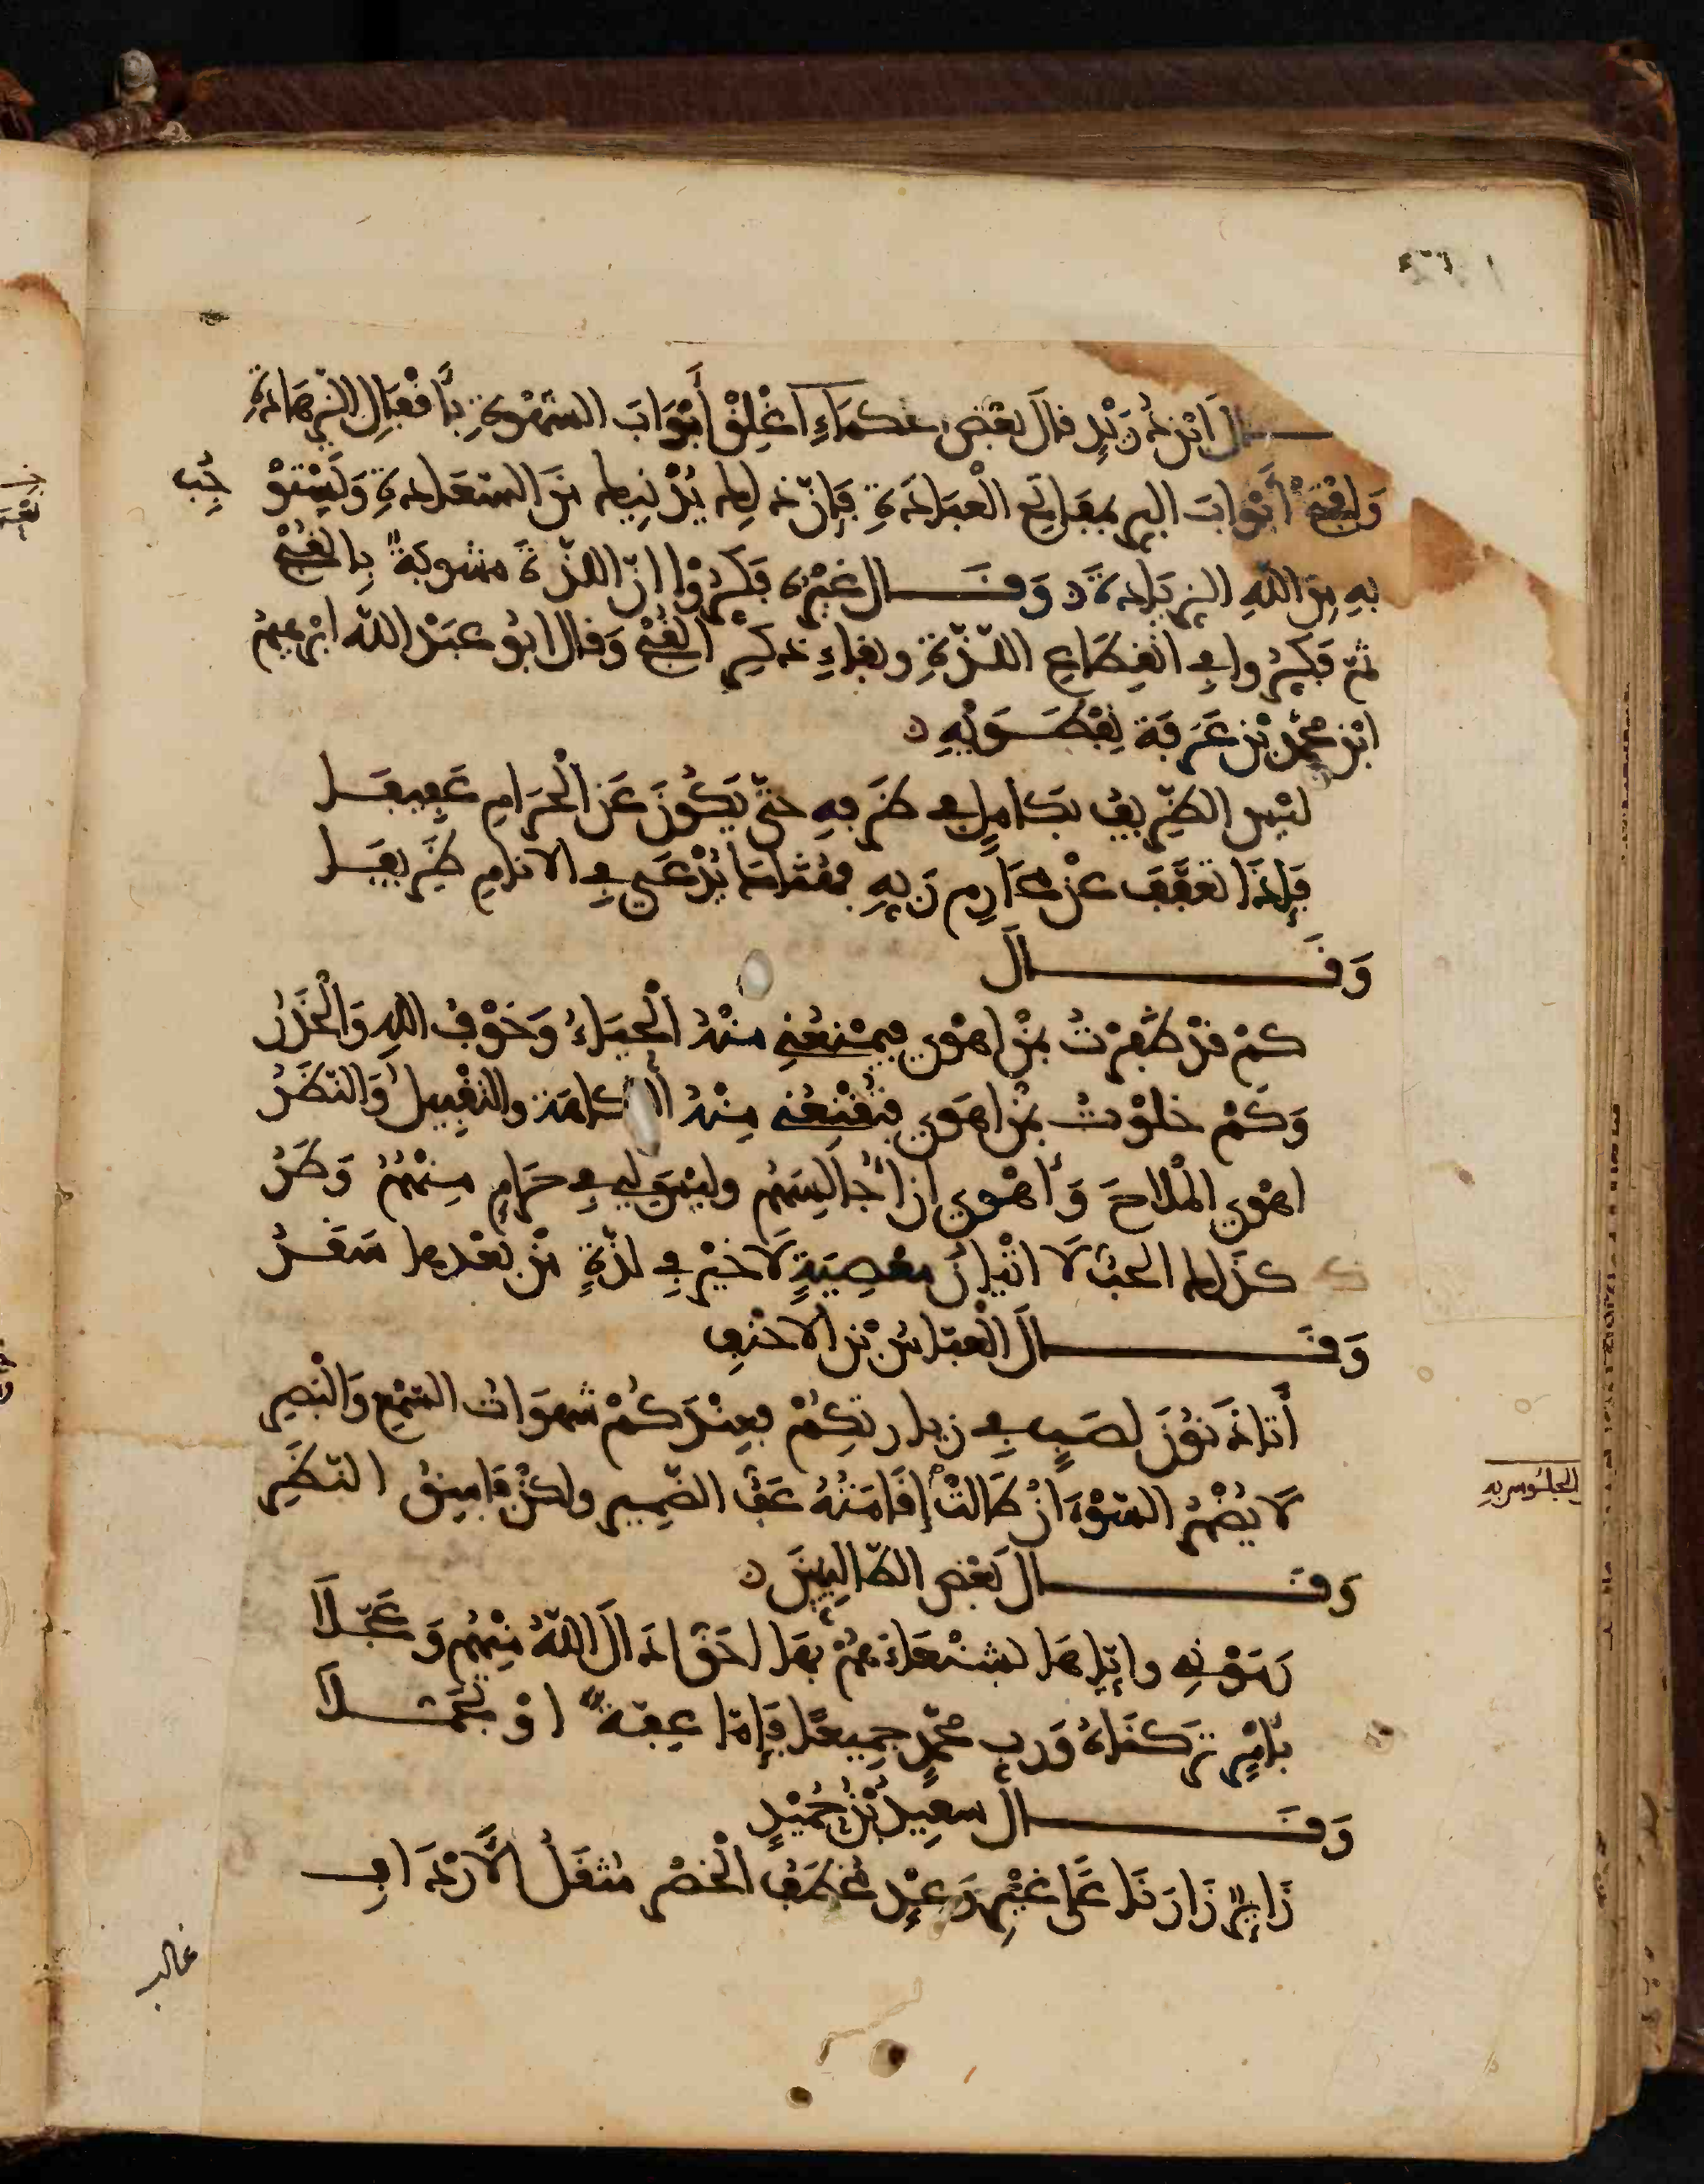 ـال ابن دُرَيْدٍ قالَ بعْضُ حكماءِ اغْلِقْ أبْوَابَ الشهْوَةِ بأَقْفَالِ الزَّهَادَةِ
وَافْتَحْ أبْوَابَ البِرِ بمفاتِحِ الْعبَادَةِ فَإنّ ذلك يُدْنِيك منَ السَّعَادةِ وَتَسْتَوْجِبُ
بهِ مِنَ اللهِ الزِيَادةَ وَقَـــالَ غيْرُه فَكِّرُوْا انّ اللذّةَ مشوبةٌ بِالقُبْحِ
ثم فَكِّرُوا في انْقِطَاعِ اللذّةِ وبقاءِ ذِكرِ القُبْحِ وَقال ابُو عبْد اللّه ابْرهيمُ
ابْن محمّد بْن عَرَفَةَ نِفْطَـوَيْهِ
ليْسَ الظّرِيفُ بكاملٍ في ظَرْفهِ حتّى يَكُونَ عَن الْحَرَامِ عَفِيفَـا
فَإذَا تعَفَّفَ عنْ محَارِم رَبِّهِ فهُنَاكَ يُدْعَى فِي الانامِ ظَرِيفَـا
وَقَـــــالَ
كمْ قدْ ظَفِرْتُ بمَنْ اهْوى فيَمْنَعُنِي منْهُ الْحيَاءُ وَخَوْفُ اللهِ وَالْحَذَرُ
وَكَمْ خلوْتُ بمَنْ اهَوى فتُقْنِعُنِي مِنْهُ الفكاهَة والتقْبِيلُ وَالنّظَرُ
اهْوى الْملاحَ وَأهْوى ان أُجَالِسَهُم وليْسَ لي في حَرَامٍ مِنْهُمُ وَطَرُ
كذَلك الحبُّ لَا اتْيانُ معْصِيَةٍ لَا خيْرَ في لذّةٍ مِنْ بعْدها سَقَـرُ
وَقَـــــالَ الْعبّاسُ بْن الاحْنفِ
أتَاذَنُوْنَ لصَبٍّ في زيارتِكُمْ فعِنْدَكُمْ شهوَاتُ السَّمْعِ وَالْبَصَرِ
لَا يُضْمِرُ السّوْءَ انْ طَالَتْ إقَامَتُهُ عَفُّ الضّمِيرِ ولكنْ فَاسِقُ النّظَرِ
الجلُوس به
وَقـــــالَ بَعْضُ الطّالبِيّينَ
رَمَوْنِي وايّاهَا بشنْعَاءَ هُمْ بهَا احَقُّ ادَالَ اللّهُ مِنْهُم وَعَجّـلَا
بأمْرٍ تَرَكنَاهُ وَربِّ محمّدٍ جمِيعًا فَإِمّا عِفّةً اوْ تَجَمُّـلَا
وَقَـــــالَ سعِيدُ بْنُ حُمَيْدٍ
زَائِرٌ زَارَنَا عَلَى غيْرِ وَعْدٍ مُخْطَفُ الْخصْرِ مُثْقَلُ الأَرْدَافِ
غالب